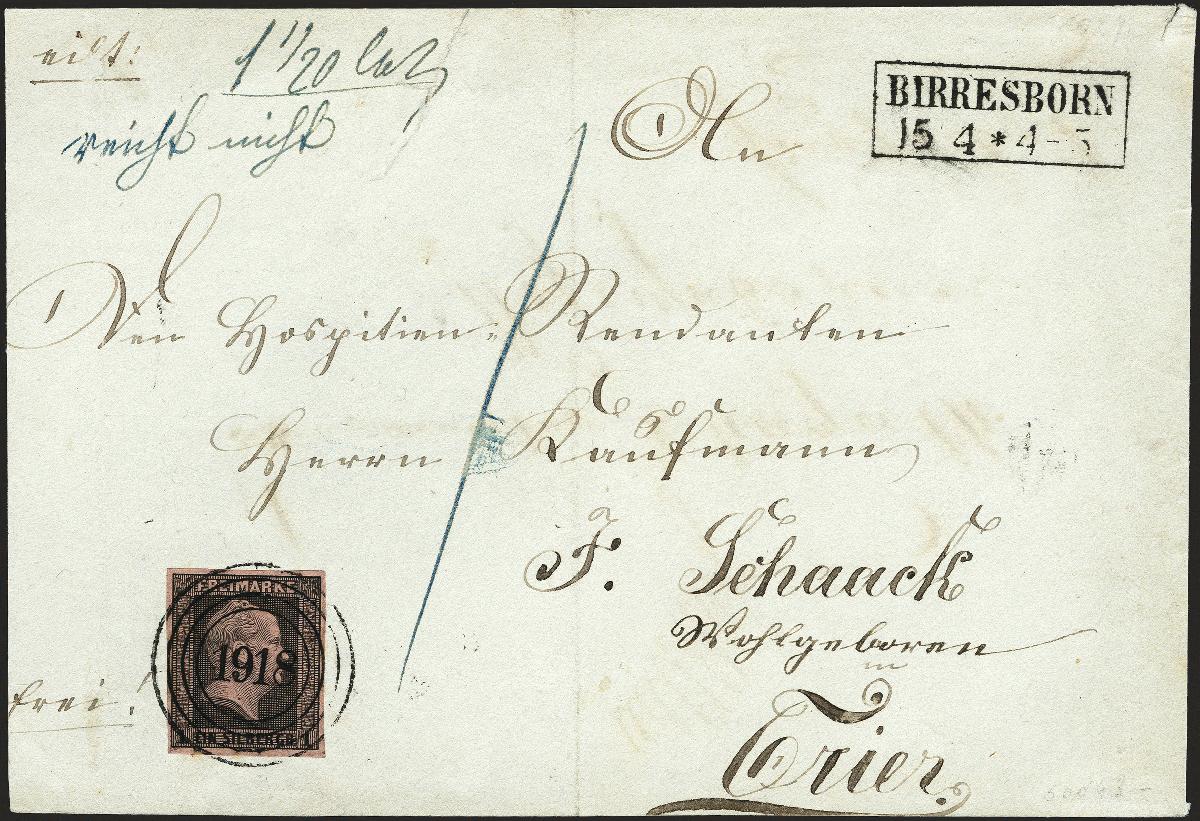 eilt!
1 1/20 Lot
reicht nicht
BIRRESBORN
15 4 * 4-5
An
Den Hospitien-Rendanten
Herrn Kaufmann
J. Schaack
Wohlgeboren
in
Trier.
frei!
FREIMARKE
1918
EIN SILBERGR.